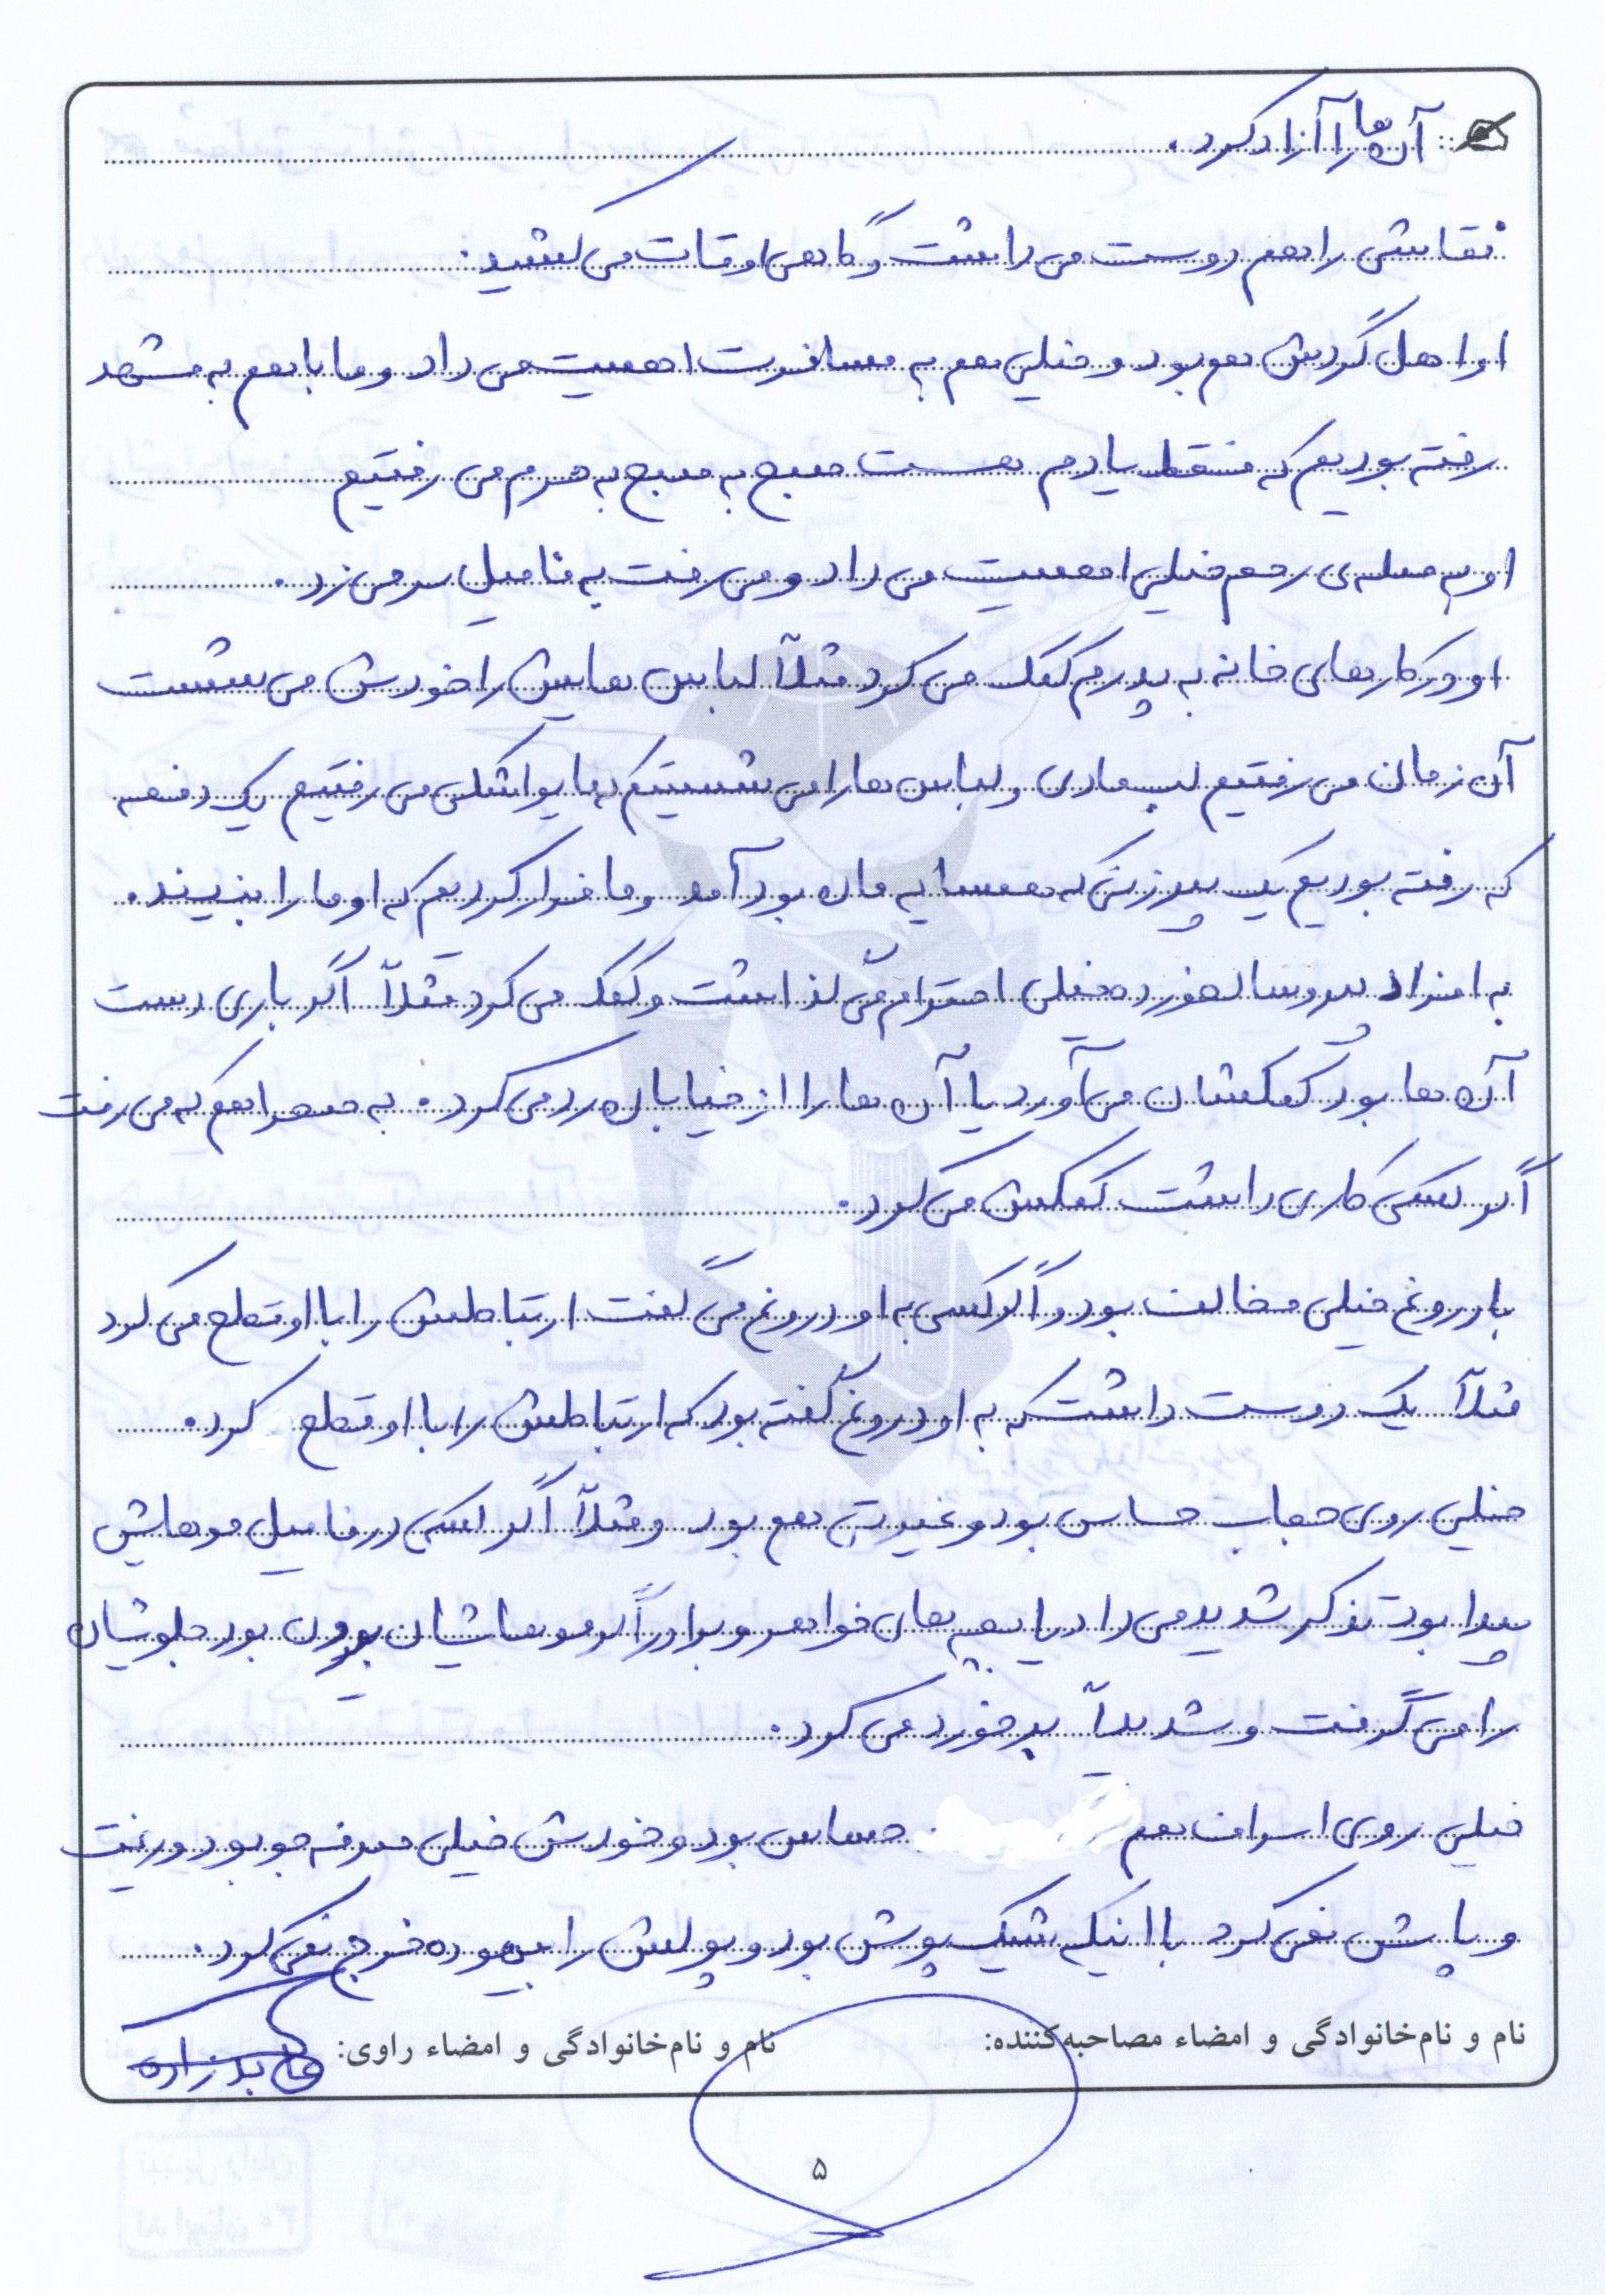 آن ها را آزاد کرد.
نقاشی را هم دوست می داشت و گاهی اوقات می کشید.
او اهل گردش هم بود و خیلی هم به مسافرت اهمیت می داد و ما با هم به مشهد
رفته بودیم که فقط یادم هست صبح به صبح به حرم می رفتیم
او به صله ی رحم خیلی اهمیت می داد و می رفت به فامیل سر می زد.
او در کارهای خانه به پدرم کمک می کرد مثلاً لباس هایش را خودش می شست
آن زمان می رفتیم لب مادی و لباس ها را می شستیم که ما یواشکی می رفتیم یک دفعه
که رفته بودیم یک پیرزنی که همسایه مان بود آمد و ما فرار کردیم که او ما را نبیند.
به افراد پیر و سالخورده خیلی احترام می گذاشت و کمک می کرد مثلاً اگر باری دست
آن ها بود کمکشان می آورد یا آن ها را از خیابان رد می کرد. به صحرا هم که می رفت
اگر کسی کاری داشت کمکش می کرد.
با دروغ خیلی مخالف بود و اگر کسی به او دروغ می گفت ارتباطش را با او قطع می کرد
مثلاً یک دوست داشت که به او دروغ گفته بود که ارتباطش را با او قطع کرد.
خیلی روی حجاب حساس بود و غیرتی هم بود و مثلاً اگر کسی در فامیل موهایش
پیدا بود تذکر شدید می داد یا بچه های خواهر و برادر اگر موهاشان بیرون بود جلوشان
را می گرفت و شدیداً برخورد می کرد.
خیلی روی اسراف هم حساس بود و خودش خیلی صرفه جو بود و ریخت
و پاش نمی کرد با اینکه شیک پوش بود و پولش را بیهوده خرج نمی کرد.
نام و نام‌خانوادگی و امضاء مصاحبه‌کننده: نام و نام‌خانوادگی و امضاء راوی:
۵